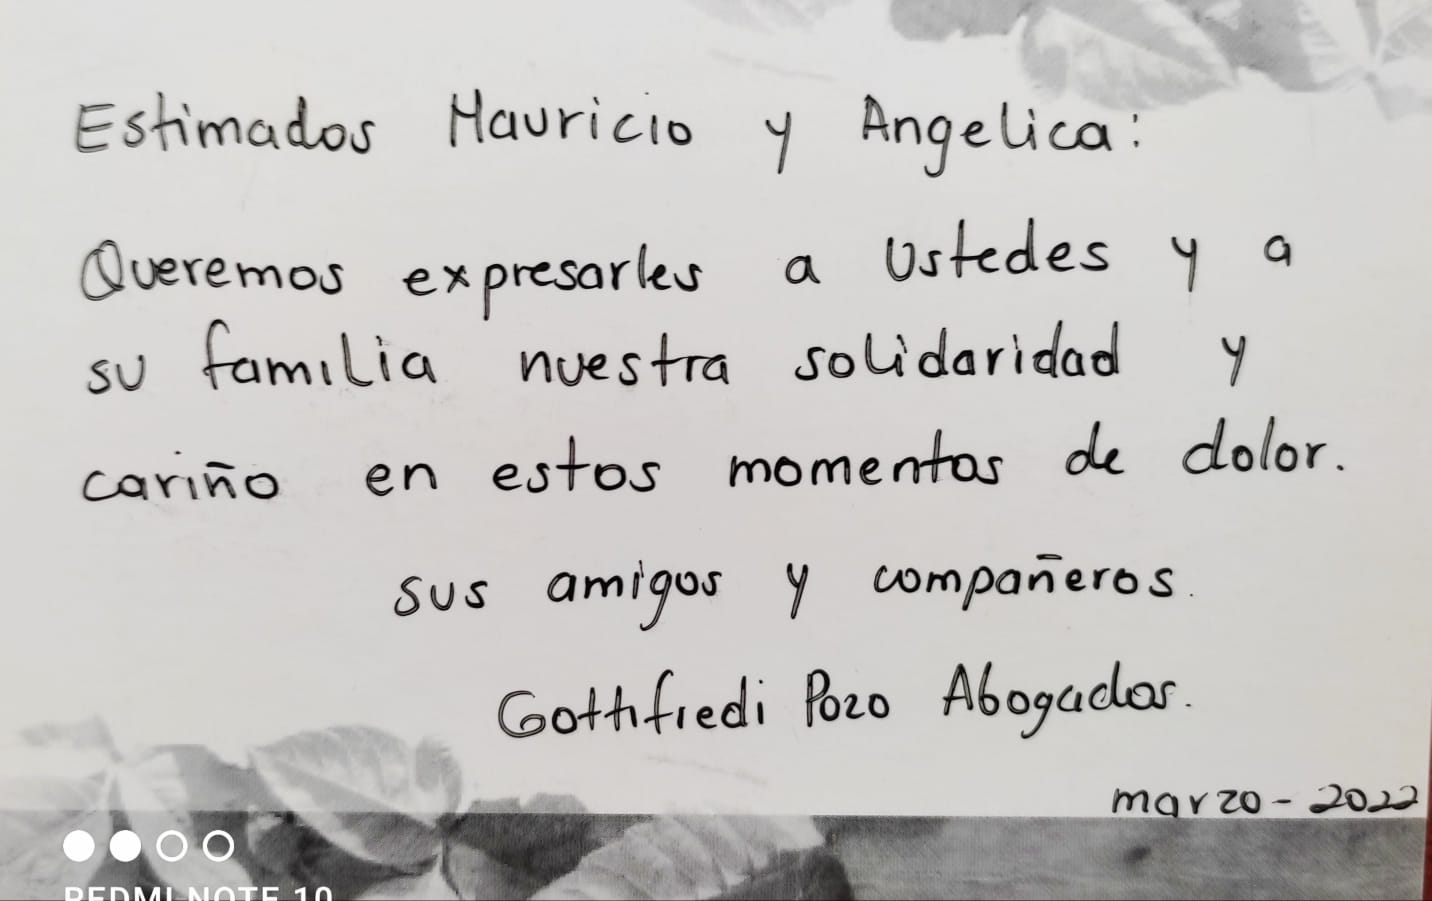 Estimados Mauricio y Angelica:
Queremos expresarles a Ustedes y a
su familia nuestra solidaridad y
cariño en estos momentos de dolor.
sus amigos y compañeros.
Gottifredi Pozo Abogados.
marzo - 2022
REDMI NOTE 10